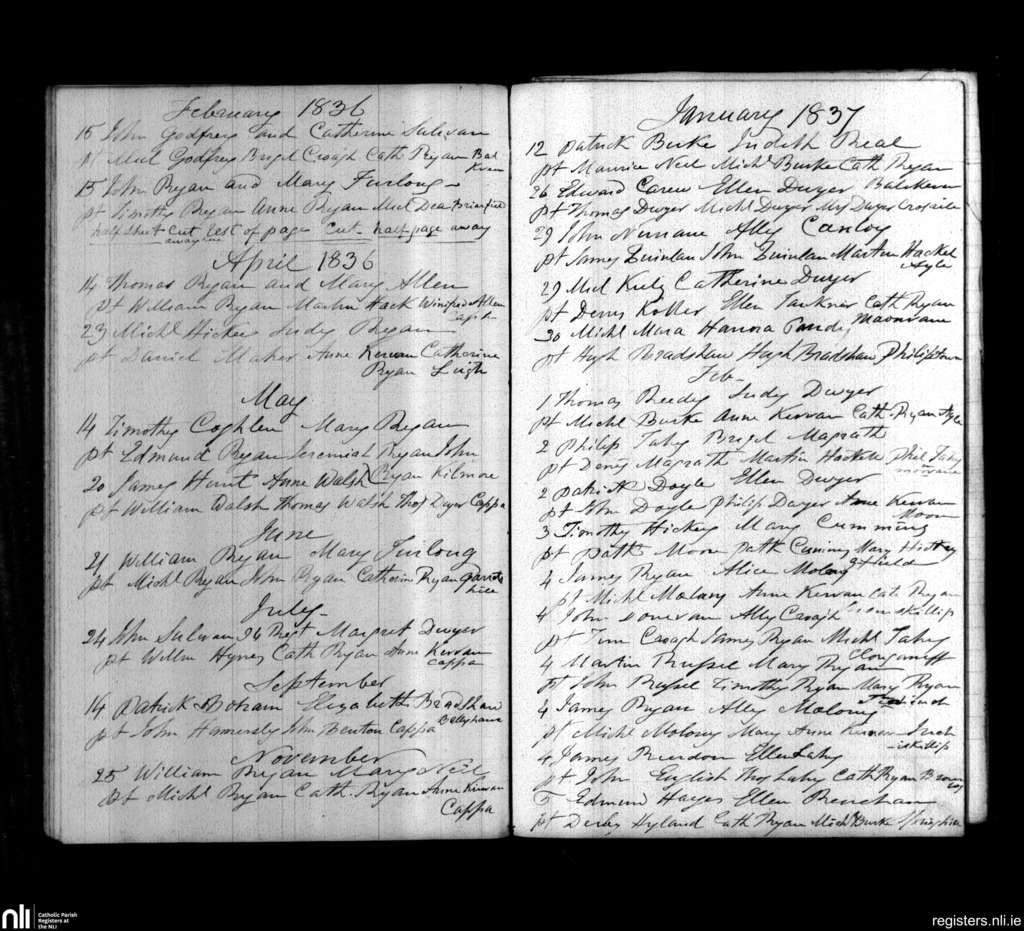 February 1836
15 John Godfrey and Catherine Sulivan
pt Micl Godfrey Brigd Croagh Cath Ryan Bal
15 John Ryan and Mary Furlong
pt Timothy Ryan Anne Ryan Micl Dea Briarfield
half sheet cut rest of page cut half page away
April 1836
14 Thomas Ryan and Mary Allen
pt William Ryan Martin Hack Winifred Allen
23 Michl Hickey Judy Ryan
pt Daniel Maher Anne Kerwan Catherine
Ryan Leigh
May
14 Timothy Coghlen Mary Ryan
pt Edmund Ryan Jeremiah Ryan John
20 James Hunt Anne Walsh Ryan Kilmore
pt William Walsh Thomas Walsh Thos Dwyer Cappa
June
21 William Ryan Mary Furlong
pt Michl Ryan John Ryan Catherin Ryan
July
24 John Sulivan Margret Dwyer
pt Willm Hynes Cath Ryan Anne Kerwan
Cappa
September
14 Patrick Elizabeth Bradshaw
pt John Hamersly John Benton Cappa
November
25 William Ryan Mary Neil
pt Michl Ryan Cath. Ryan Anne Kirwan
Cappa
January 1837
12 Patrick Burke Judith Real
pt Maurice Neil Michl Burke Cath Ryan
26 Edward Carew Ellen Dwyer
pt Thomas Dwyer Michl Dwyer Mry Dwyer
29 John Nunane Ally Conloy
pt James Quinlan John Quinlan Martin Hackel
Ayle
29 Micl Kiely Catherine Dwyer
pt Denis Ellen Faukner Cath Ryan
30 Michl Mara Hanora
pt Hugh Bradshaw Hugh Bradshaw Philipstown
Feb
1 Thomas Reedy Judy Dwyer
pt Michl Burke Anne Kerwan Cath. Ryan Ayle
2 Philip Fahy Brigd Magrath
pt Denis Magrath Martin Hackett Phil Fahy
2 Patrick Doyle Ellen Dwyer
pt Wm Doyle Philip Dwyer Anne Kerwan
Moon
3 Timothy Hickey Mary Cummins
pt Patk Moon Patk Mary Hickey
4 James Ryan Alice Molony
pt Michl Molony Anne Kerwan Cath Ryan
4 John Donovan Ally Croagh
pt Tim Croagh James Ryan Michl Fahy
4 Martin Russel Mary Ryan
pt John Russel Timothy Ryan Mary Ryan
4 James Ryan Ally Molony
pt Michl Molony Mary Anne Kerwan
4 James Riordon Ellen Lahy
pt John English Thos Lahy Cath Ryan
5 Edmund Hayes Ellen Renehan
pt Derby Hyland Cath Ryan Michl Burke
nli
Catholic Parish
Registers at
the NLI
registers.nli.ie